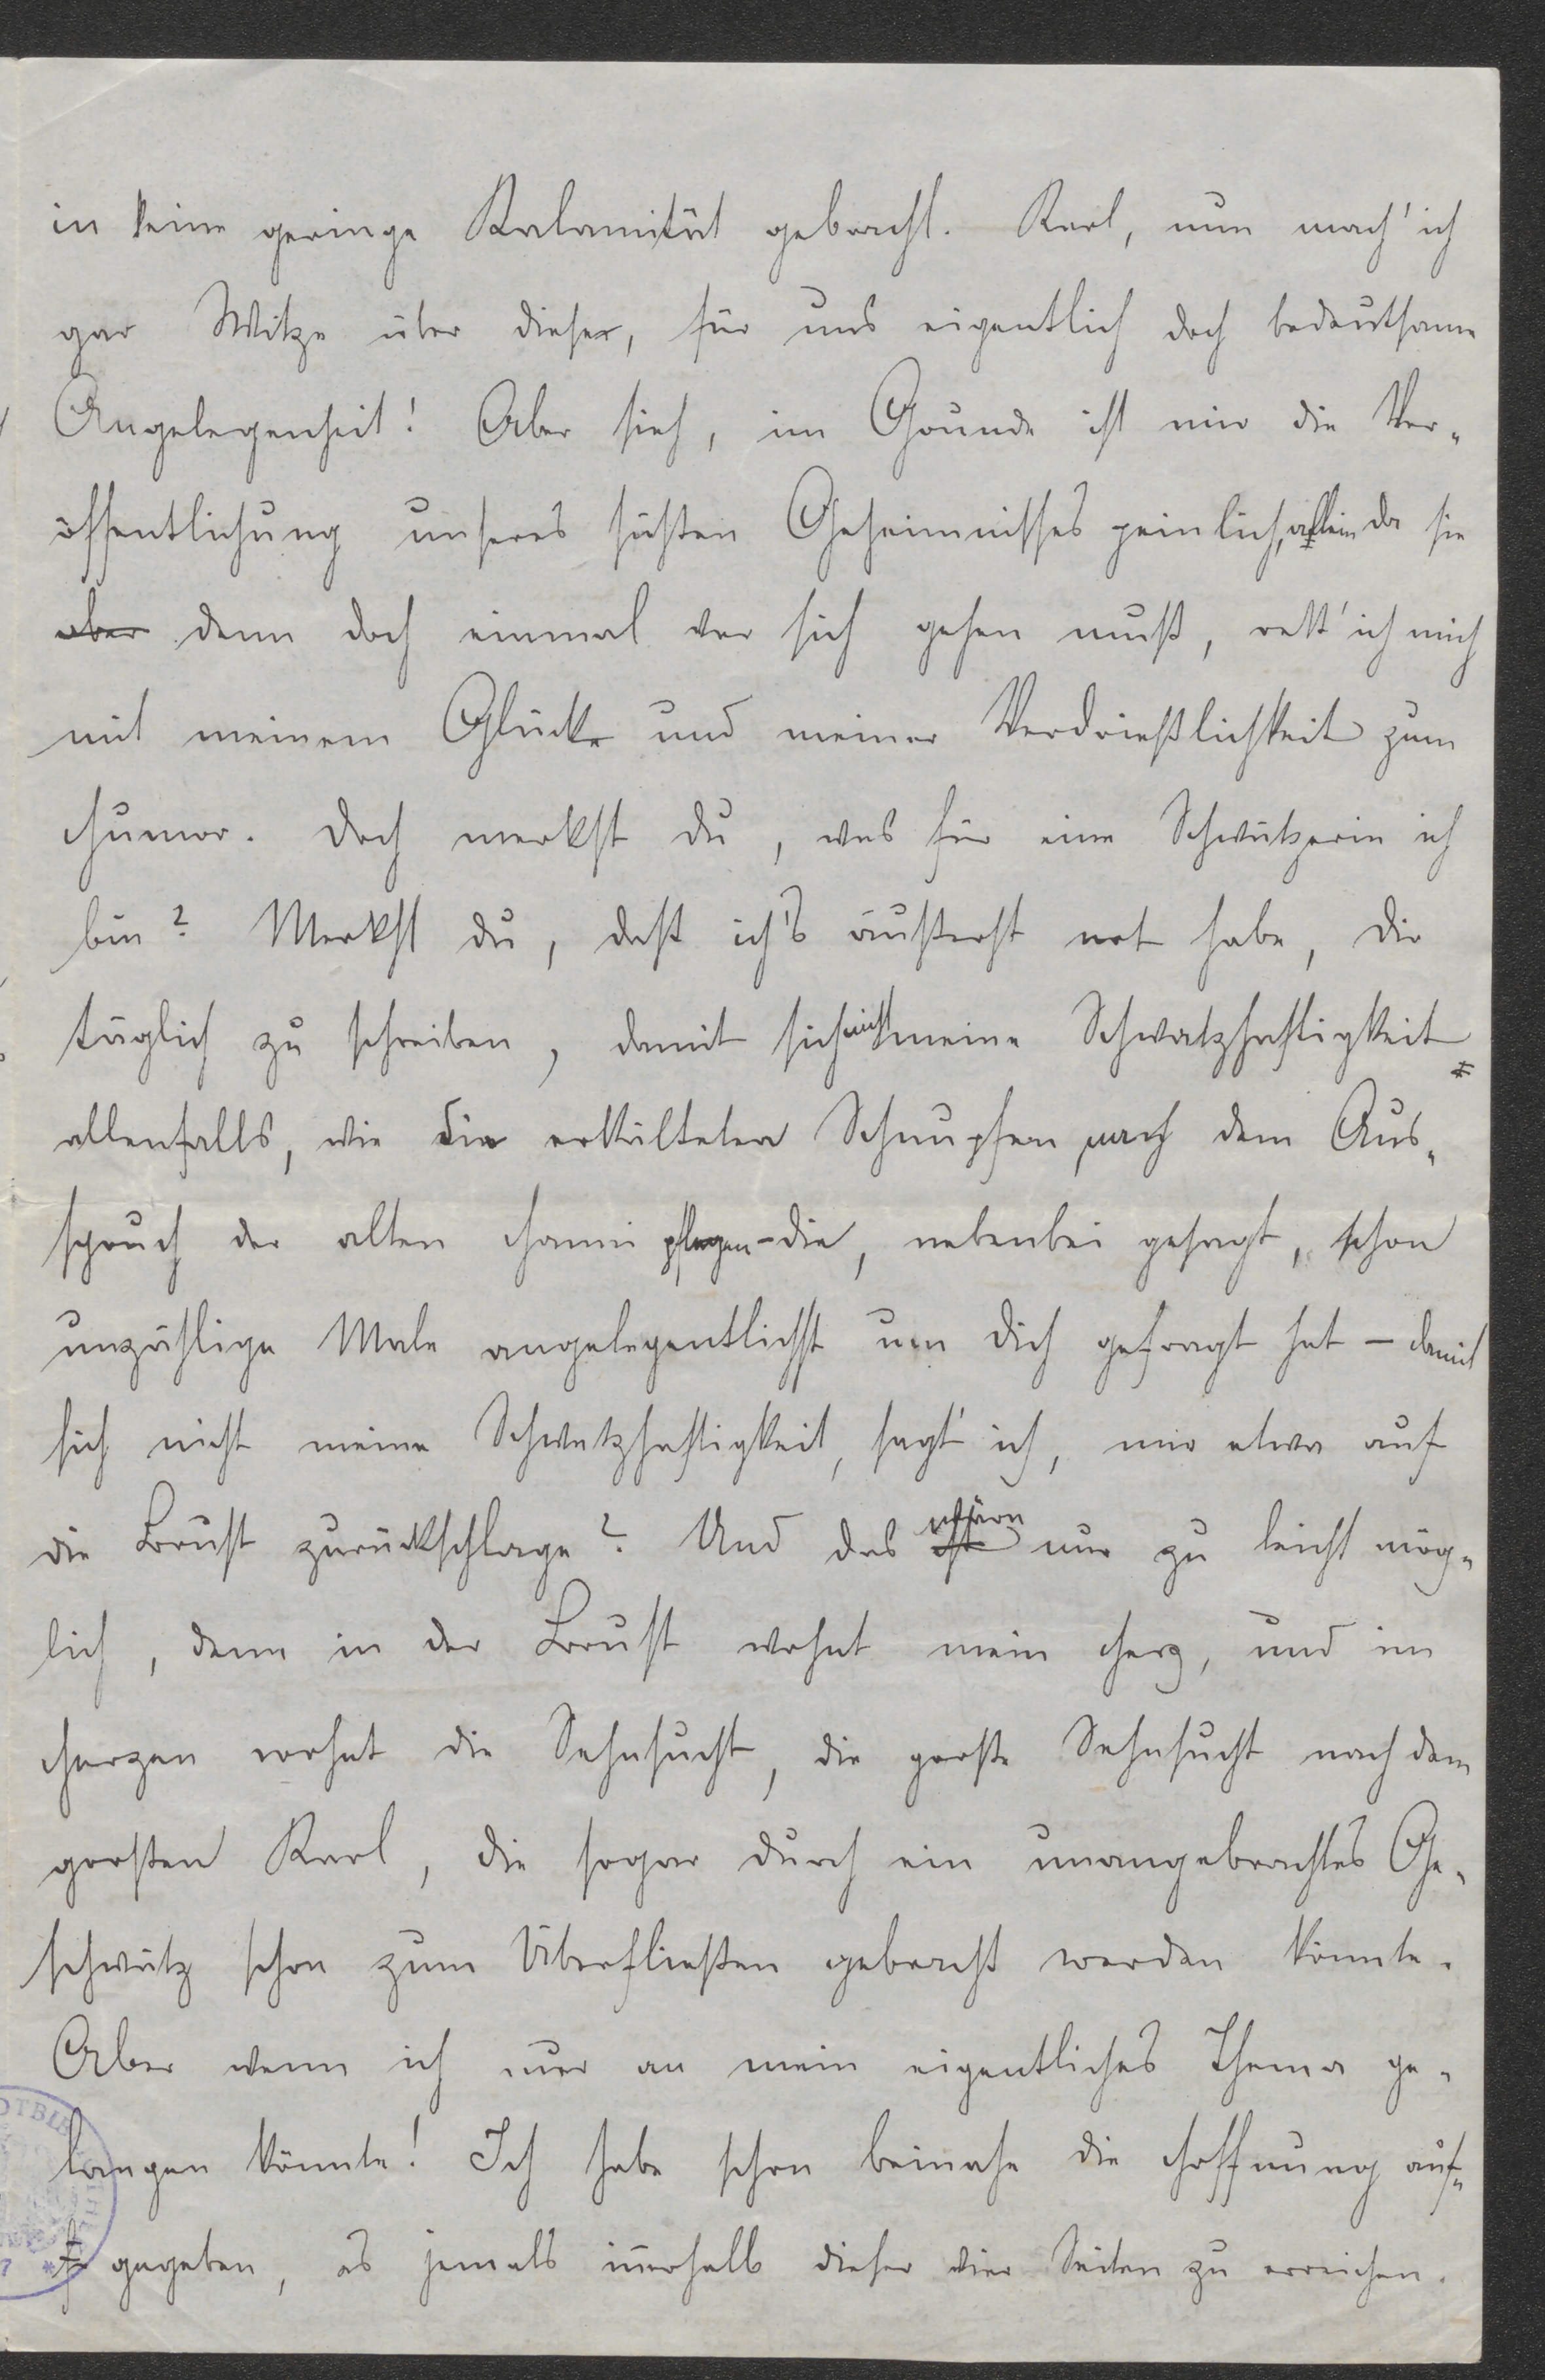 in keine geringe Kalamität gebracht. Karl, nun mach' ich
gar Witze über dieser, für uns eigentlich doch bedeutsame
Angelegenheit! Aber sieh, im Grunde ist mir die Ver-
öffentlichung unseres süßen Geheimnisses peinlich, allein da sie
aber denn doch einmal vor sich gehen muß, rett' ich mich
mit meinem Glücke und meiner Verdrießlichkeit zum
Humor. Doch merkst du, was für eine Schwätzerin ich
bin? Merkst du, daß ich's äußerst not habe, dir
täglich zu schreiben, damit sich nicht meine Schwatzhaftigkeit
allenfalls, wie die erkälteten Schnupfen nach dem Aus-
spruch der alten Hanni pflegen – die, nebenbei gesagt, schon
unzählige Male angelegentlichst um dich gefragt hat – damit
sich nicht meine Schwatzhaftigkeit, sagt' ich, mir etwa auf
die Brust zurückschlage? Und das ist wär nur zu leicht mög-
lich, denn in der Brust wohnt mein Herz, und im
Herzen wohnt die Sehnsucht, die große Sehnsucht nach dem
großen Karl, die sogar durch ein unangebrachtes Ge-
schwätz schon zum Überfließen gebracht werden könnte.
Aber wenn ich nur an mein eigentliches Thema ge-
langen könnte! Ich habe schon beinahe die Hoffnung auf-
gegeben, es jemals innerhalb dieser vier Seiten zu erreichen.